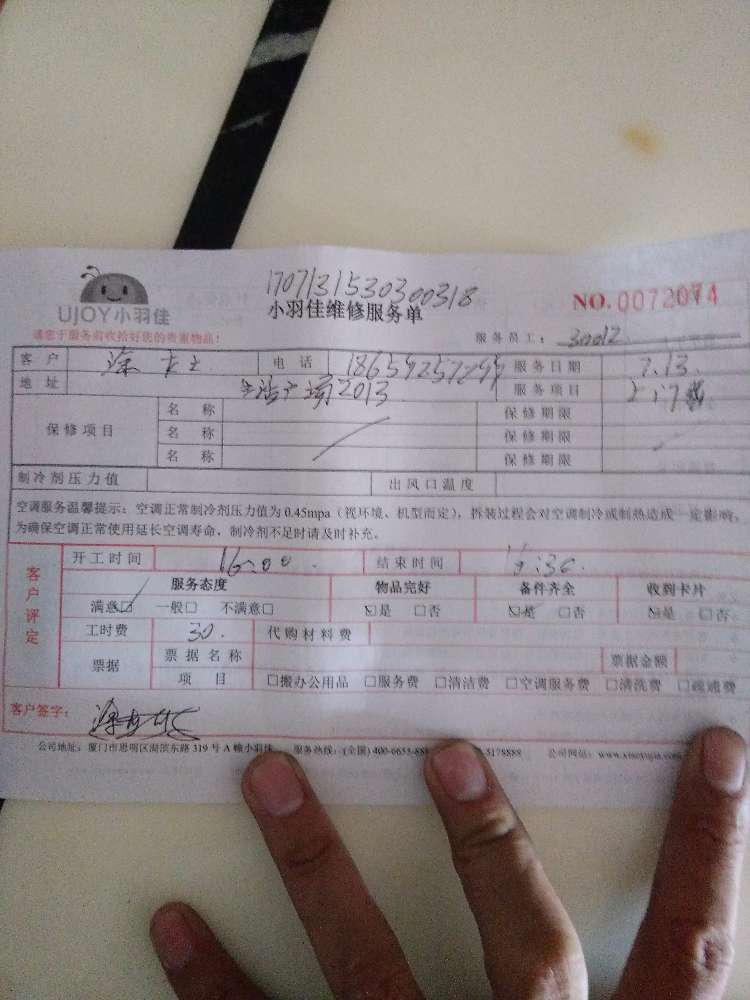 1707131530300318
UJOY小羽佳 小羽佳维修服务单 NO.0072074
请您于服务前收拾好您的贵重物品! 服务员工: 30012
客户 涂女士 电话 服务日期 7.13.
地址 2013 服务项目
保修项目 名称 保修期限
名称 保修期限
名称 保修期限
制冷剂压力值 出风口温度
空调服务温馨提示:空调正常制冷剂压力值为0.45mpa(视环境、机型而定),拆装过程会对空调制冷或制热造成一定影响,
为确保空调正常使用延长空调寿命,制冷剂不足时请及时补充。
客户评定
开工时间 16:00 结束时间 16:30
服务态度 物品完好 备件齐全 收到卡片
满意☑ 一般□ 不满意□ ☑是 □否 ☑是 □否 ☑是 □否
工时费 30. 代购材料费
票据 票据名称 票据金额
项目 □搬办公用品 □服务费 □清洁费 □空调服务费 □清洗费 □疏通费
客户签字:
公司地址:厦门市思明区湖滨东路319号A幢小羽佳 服务热线:(全国)400-6655-888 5178888 公司网站: